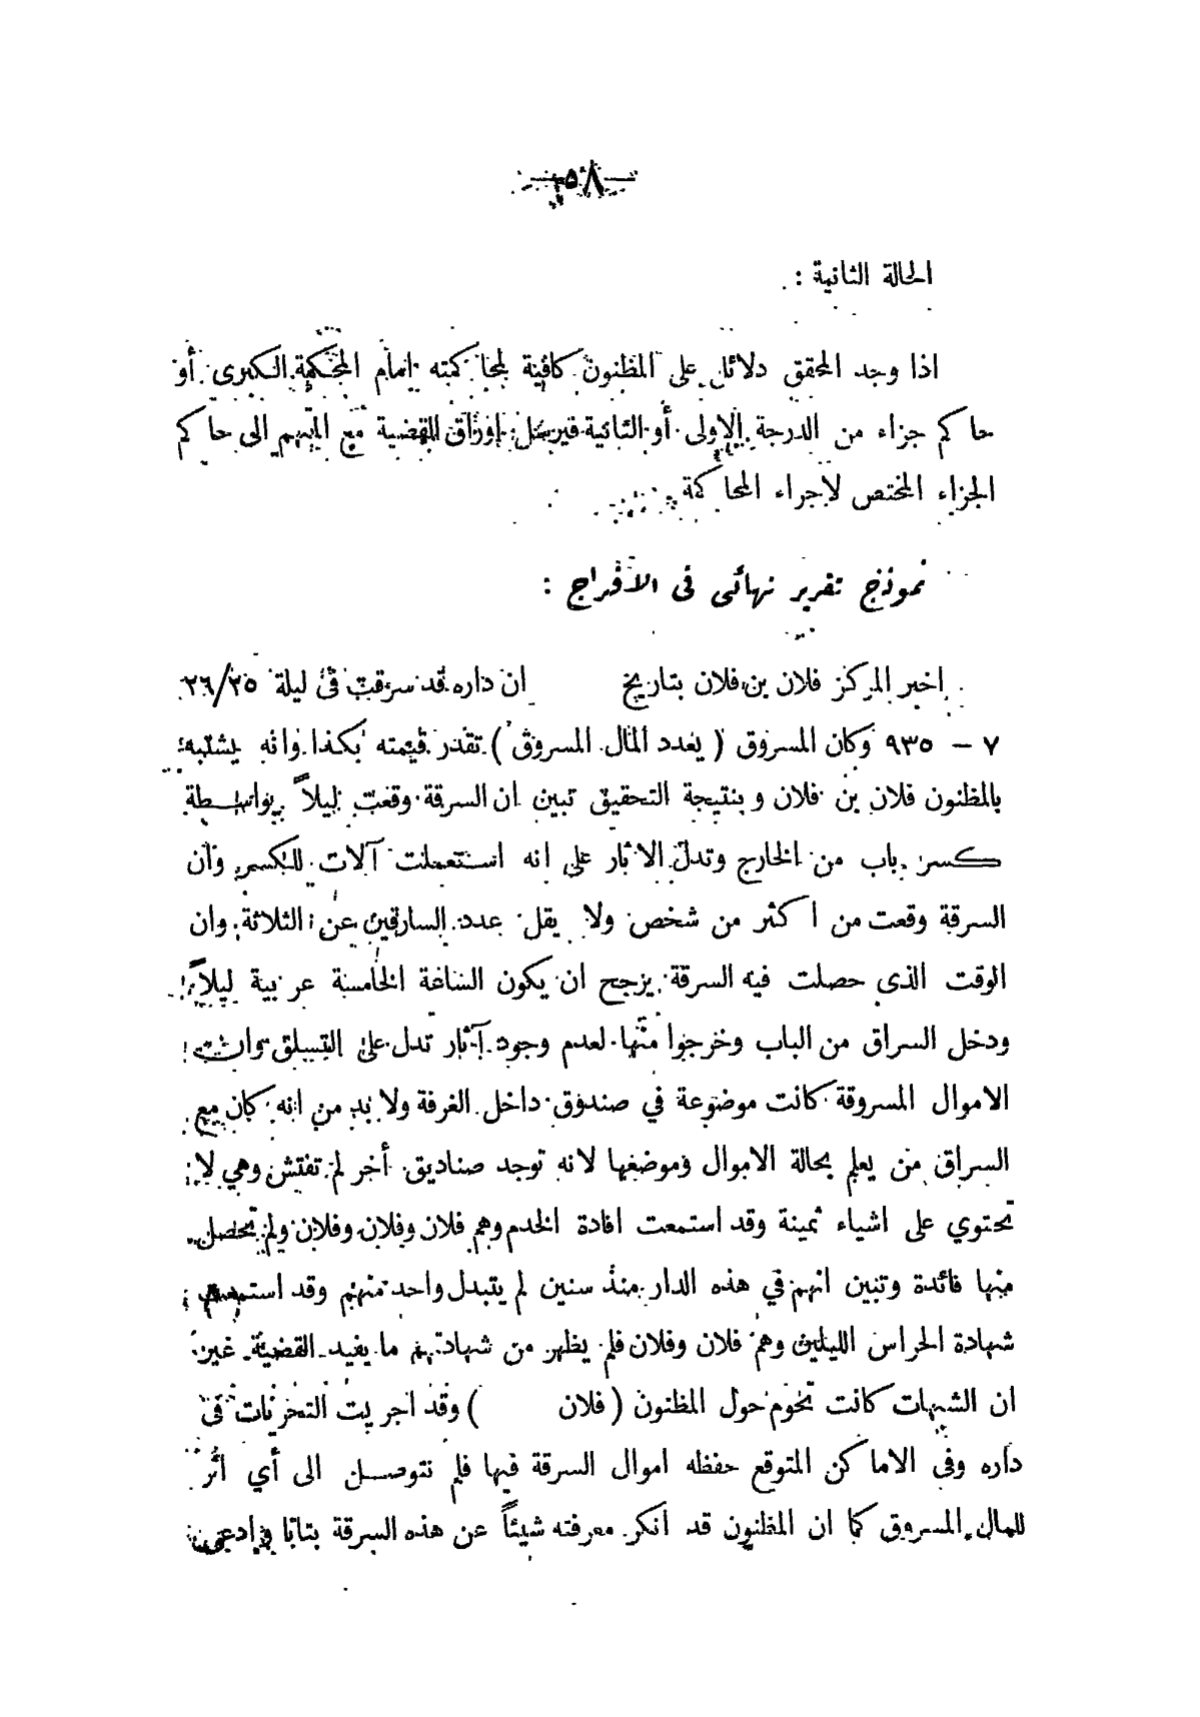 الحالة الثانية :
اذا وجد المحقق دلائل على المظنون كافية لمحاكمته امام المحكمة الكبرى أو
حاكم جزاء من الدرجة الاولى أو الثانية فيرسل اوراق القضية مع المتهم الى حاكم
الجزاء المختص لاجراء المحاكمة .
نموذج تقرير نهائى فى الافراج :
اخبر المركز فلان بن فلان بتاريخ ان داره قد سرقت فى ليلة ٢٦/٢٥
٧ – ٩٣٥ وكان المسروق ( يعدد المال المسروق ) تقدر قيمته بكذا وانه يشتبه
بالمظنون فلان بن فلان وبنتيجة التحقيق تبين ان السرقة وقعت ليلاً بواسطة
كسر باب من الخارج وتدل الاثار على انه استعملت آلات للكسر وان
السرقة وقعت من اكثر من شخص ولا يقل عدد السارقين عن الثلاثة وان
الوقت الذى حصلت فيه السرقة يرجح ان يكون الساعة الخامسة عربية ليلاً
ودخل السراق من الباب وخرجوا منها لعدم وجود آثار تدل على التسلق وان
الاموال المسروقة كانت موضوعة في صندوق داخل الغرفة ولا بد من انه كان مع
السراق من يعلم بحالة الاموال وموضعها لانه توجد صناديق أخر لم تفتش وهي لا
تحتوي على اشياء ثمينة وقد استمعت افادة الخدم وهم فلان وفلان وفلان ولم تحصل
منها فائدة وتبين انهم في هذه الدار منذ سنين لم يتبدل واحد منهم وقد
شهادة الحراس الليلين وهم فلان وفلان فلم يظهر من شهادتهم ما يفيد القضية غير
ان الشبهات كانت تحوم حول المظنون ( فلان ) وقد اجريت التحريات فى
داره وفى الاماكن المتوقع حفظه اموال السرقة فيها فلم نتوصل الى أي اثر
للمال المسروق كما ان المظنون قد انكر معرفته شيئاً عن هذه السرقة بتاتا وادعى